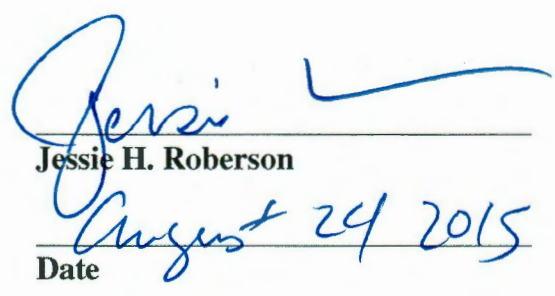 Jessie
Jessie H. Roberson
August 24 2015
Date